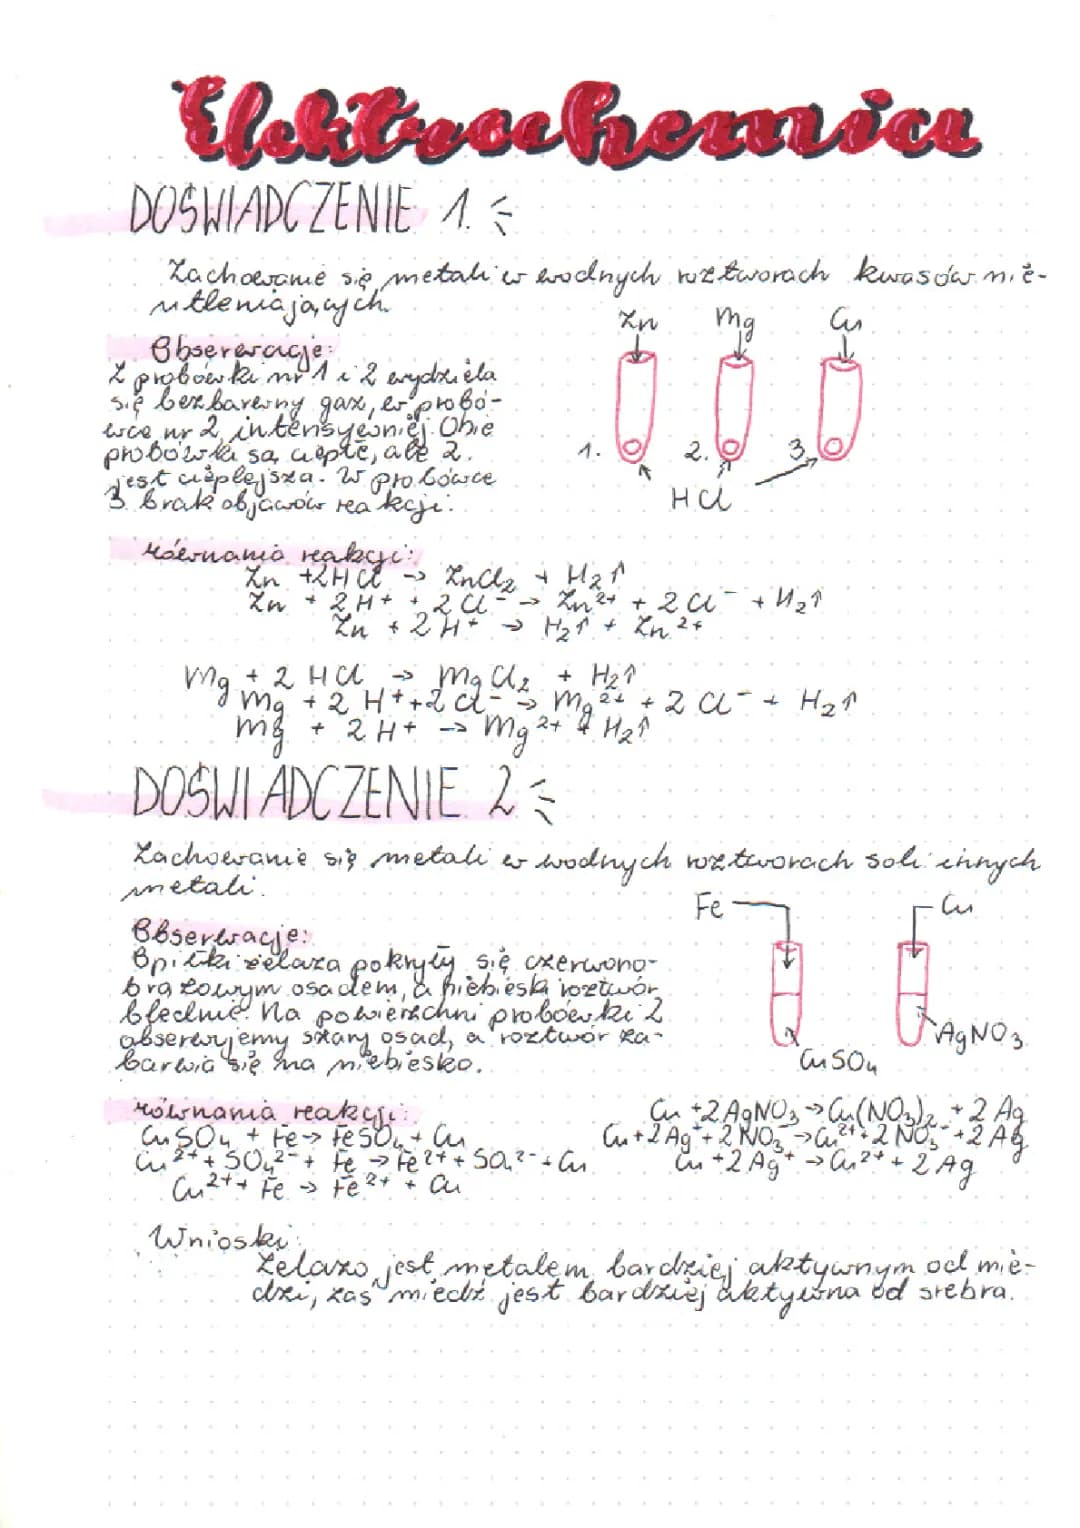 Elektrochemia
DOŚWIADCZENIE 1.
Zachowanie się metali w wodnych roztworach kwasów nie-
utleniających.
Zn Mg Cu
Obserwacje:
Z probówki nr 1 i 2 wydziela
się bezbarwny gaz, w probó-
wce nr 2 intensywniej. Obie
probówki są ciepłe, ale 2.
jest cieplejsza. W probówce
3. brak objawów reakcji.
1. 2. 3.
HCl
równania reakcji:
Zn + 2HCl → ZnCl₂ + H₂↑
Zn + 2H⁺ + 2Cl⁻ → Zn²⁺ + 2Cl⁻ + H₂↑
Zn + 2H⁺ → H₂↑ + Zn²⁺
Mg + 2 HCl → MgCl₂ + H₂↑
Mg + 2 H⁺ + 2 Cl⁻ → Mg²⁺ + 2 Cl⁻ + H₂↑
Mg + 2 H⁺ → Mg²⁺ + H₂↑
DOŚWIADCZENIE 2
Zachowanie się metali w wodnych roztworach soli innych
metali.
Fe Cu
Obserwacje:
Opiłki żelaza pokryły się czerwono-
brązowym osadem, a niebieski roztwór
blednie. Na powierzchni probówki 2
obserwujemy szary osad, a roztwór za-
barwia się na niebiesko.
CuSO₄
AgNO₃
równania reakcji:
CuSO₄ + Fe → FeSO₄ + Cu
Cu²⁺ + SO₄²⁻ + Fe → Fe²⁺ + SO₄²⁻ + Cu
Cu²⁺ + Fe → Fe²⁺ + Cu
Cu + 2AgNO₃ → Cu(NO₃)₂ + 2 Ag
Cu + 2 Ag⁺ + 2 NO₃⁻ → Cu²⁺ + 2 NO₃⁻ + 2 Ag
Cu + 2 Ag⁺ → Cu²⁺ + 2 Ag
Wnioski:
Żelazo jest metalem bardziej aktywnym od mie-
dzi, zaś miedź jest bardziej aktywna od srebra.